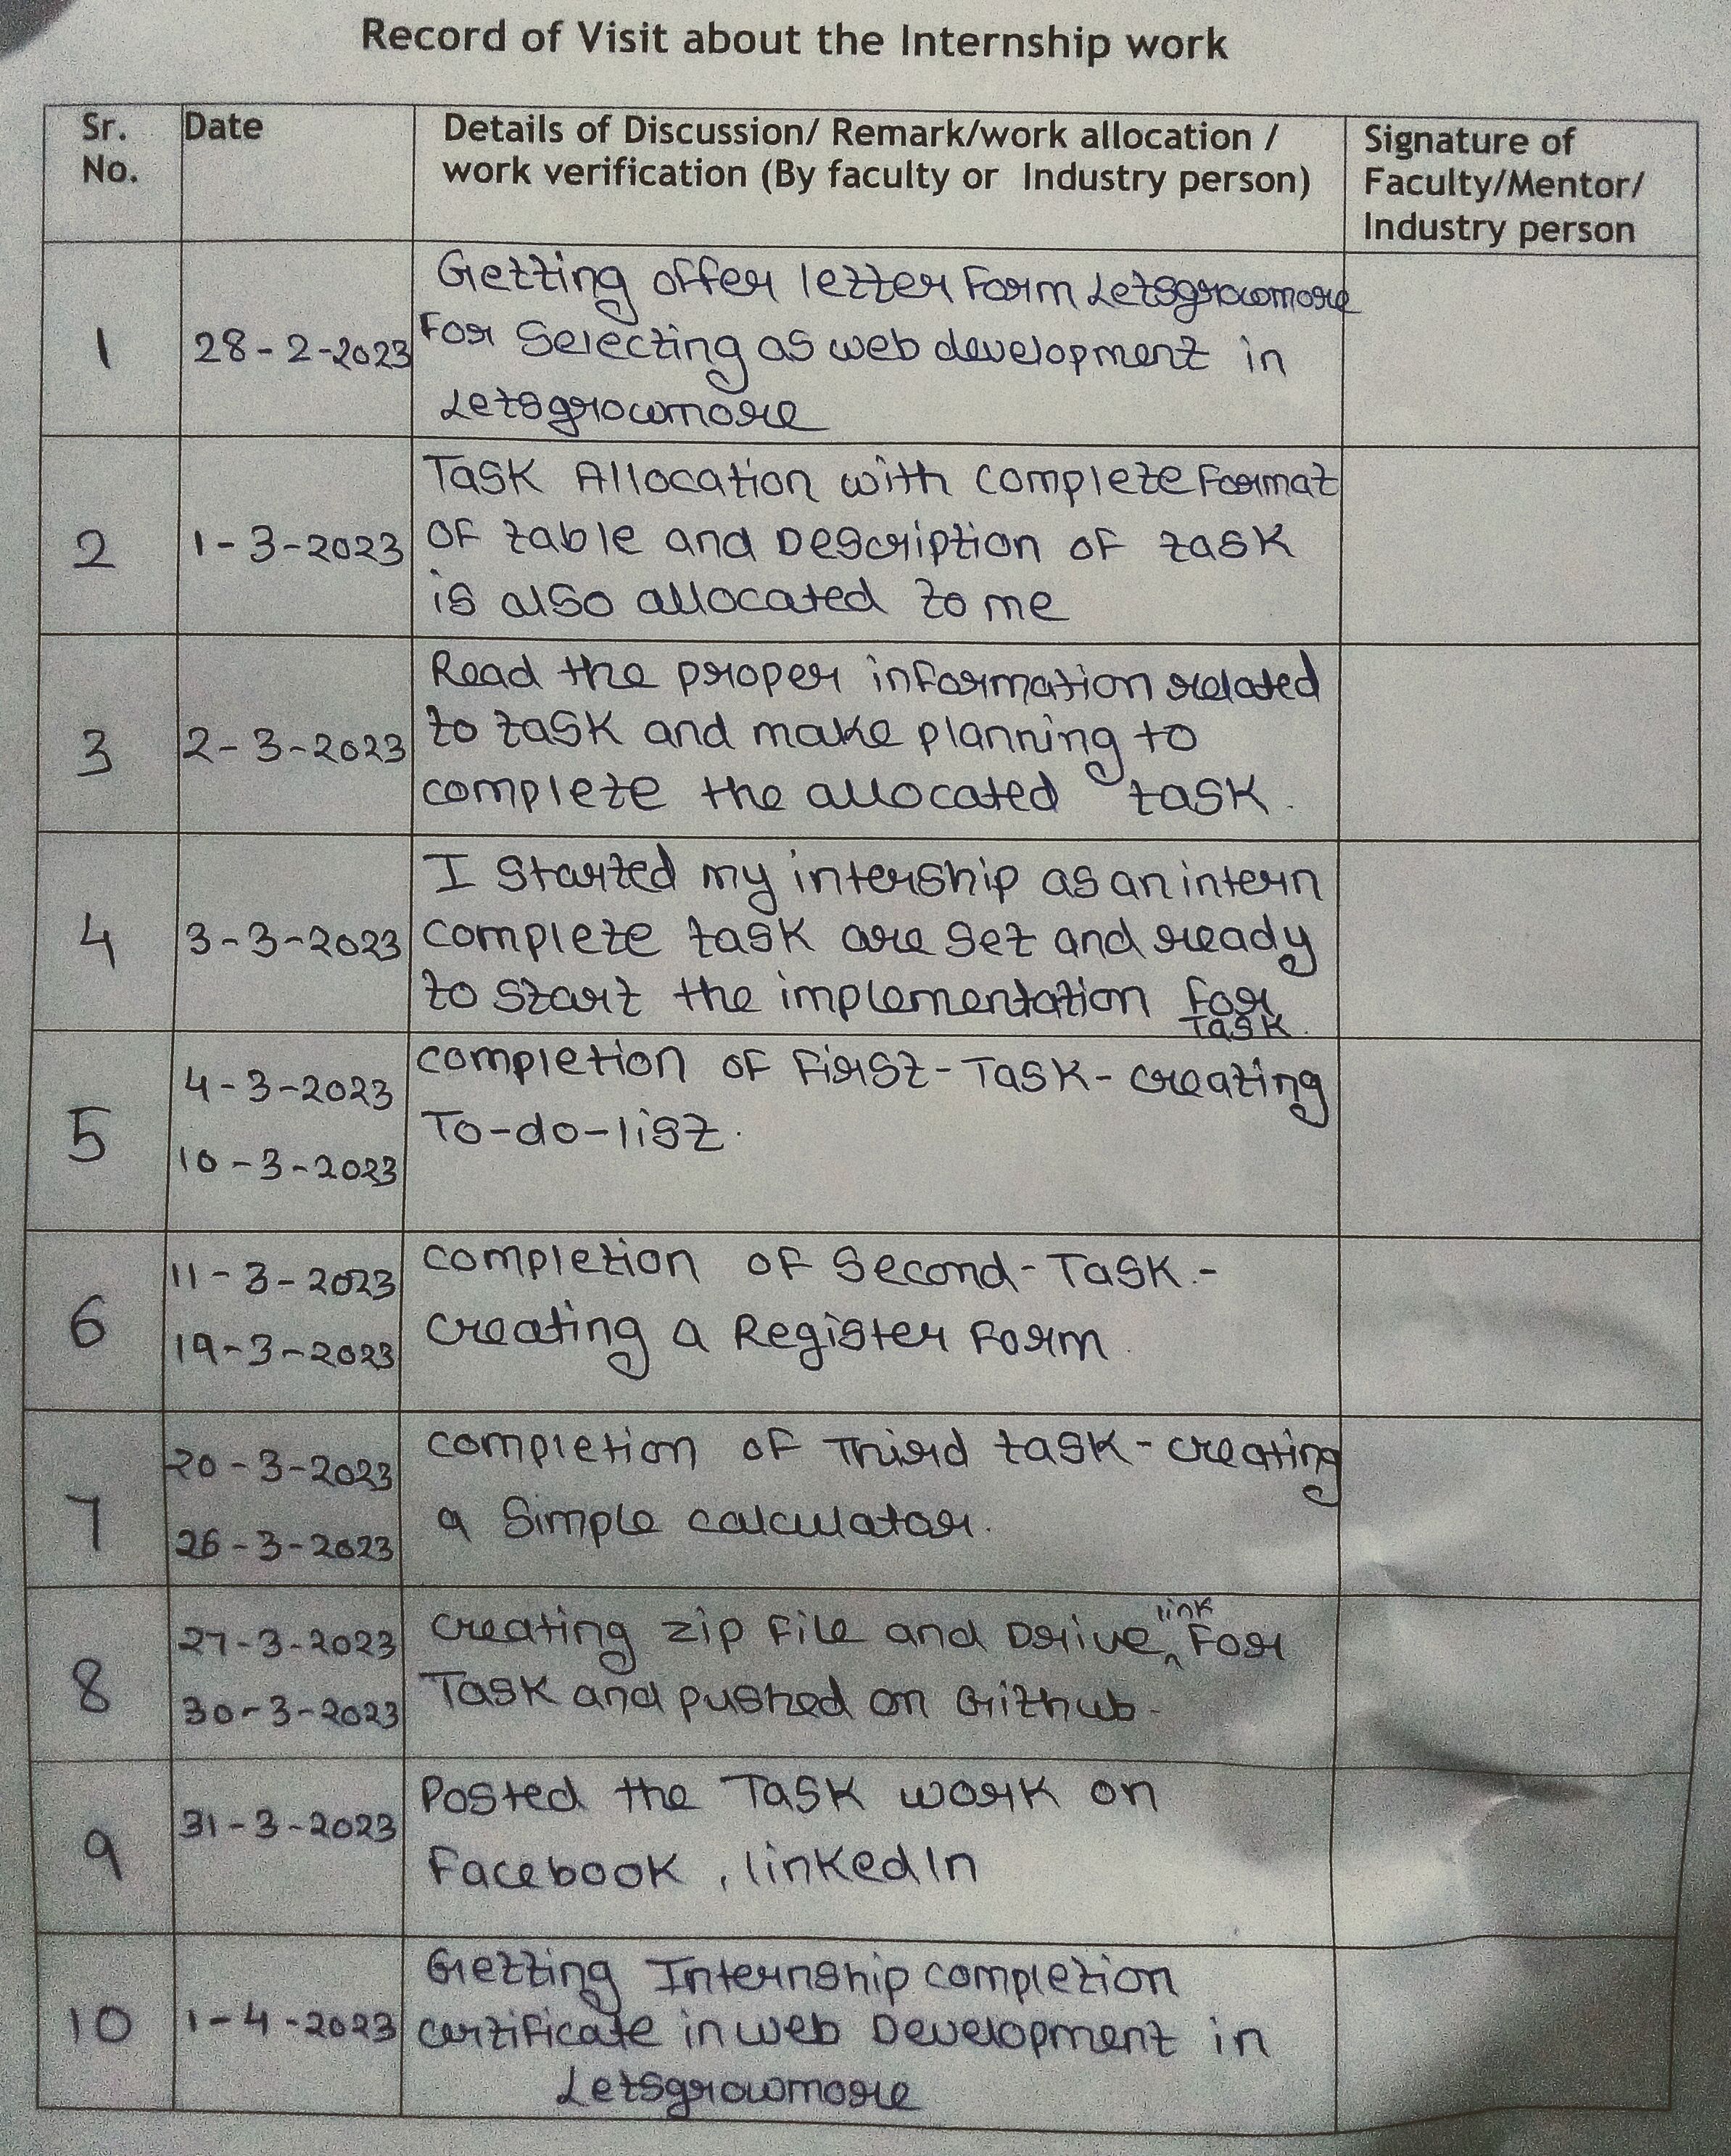 Record of Visit about the Internship work
Sr.
No.
Date
Details of Discussion/ Remark/work allocation /
work verification (By faculty or Industry person)
Signature of
Faculty/Mentor/
Industry person
1
28-2-2023
Getting offer letter Form Letsgrowmore
For Selecting as web development in
Letsgrowmore
2
1-3-2023
Task Allocation with complete Format
of table and Description of task
is also allocated to me
3
2-3-2023
Read the proper information related
to task and make planning to
complete the allocated task.
4
3-3-2023
I Started my intership as an intern
complete task are set and ready
to start the implementation for
Task.
5
4-3-2023
10-3-2023
completion of First-Task-creating
To-do-list.
6
11-3-2023
19-3-2023
completion of Second-Task.-
creating a Register Form.
7
20-3-2023
26-3-2023
completion of Third task-creating
a Simple calculator.
8
27-3-2023
30-3-2023
creating zip File and Drive link For
Task and pushed on Github-
9
31-3-2023
Posted the Task work on
Facebook, linkedIn
10
1-4-2023
Getting Internship completion
certificate in web Development in
Letsgrowmore